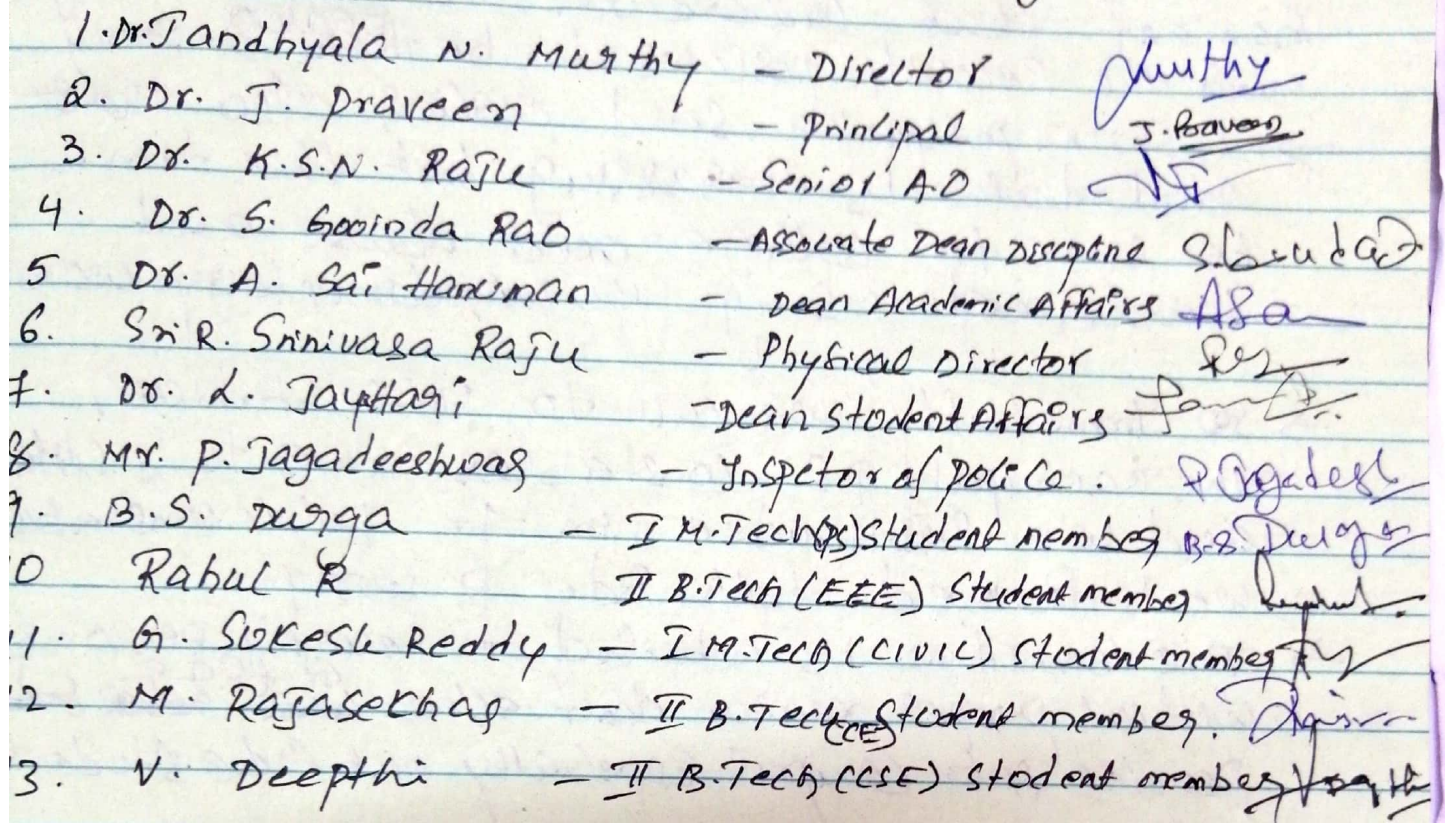 1. Dr. Jandhyala N. Murthy - Director Murthy
2. Dr. J. Praveen - Principal J. Praveen
3. Dr. K.S.N. Raju - Senior A.O
4. Dr. S. Govinda Rao - Associate Dean Discipline
5 Dr. A. Sai Hanuman - Dean Academic Affairs
6. Sri R. Srinivasa Raju - Physical Director
7. Dr. L. Jayahari - Dean Student Affairs
8. Mr. P. Jagadeeshwar - Inspetor of police. P Jagadesh
9. B.S. Durga - I M.Tech(PS) Student member B.S. Durga
0 Rahul R II B.Tech (EEE) Student member
1. G. Sokesh Reddy - I M.Tech (CIVIL) Student member
2. M. Rajasekhar - II B.Tech (CE) Student member.
3. V. Deepthi - II B.Tech (CSE) Student member